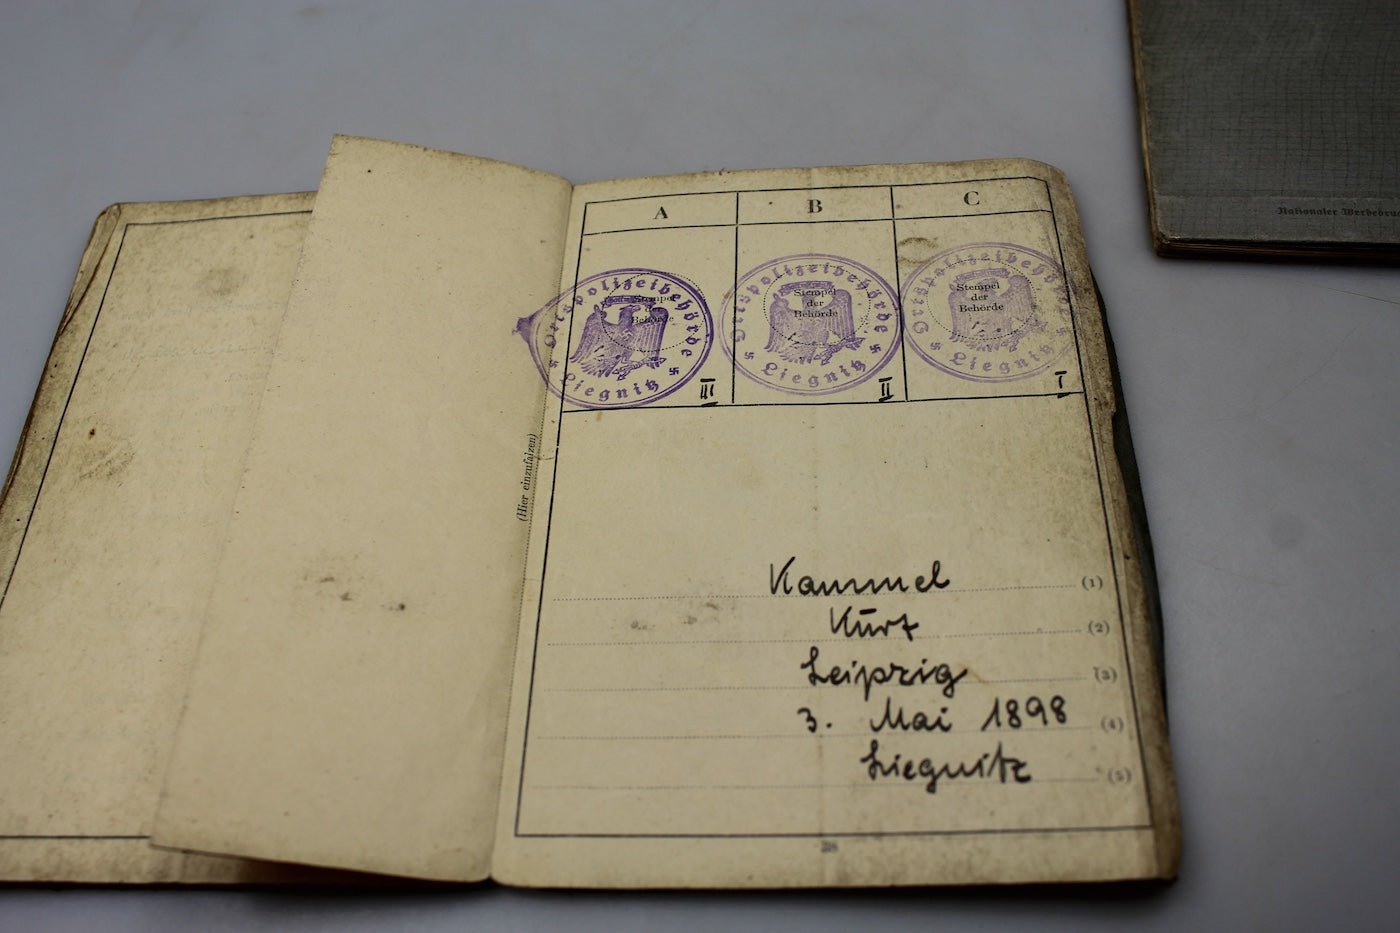 A B C
Ortspolizeibehörde
Liegnitz
Stempel
der
Behörde
III
Ortspolizeibehörde
Liegnitz
Stempel
der
Behörde
II
Ortspolizeibehörde
Liegnitz
Stempel
der
Behörde
I
(Hier einzufalzen)
Kammel (1)
Kurt (2)
Leipzig (3)
3. Mai 1898 (4)
Liegnitz (5)
38
Nationaler